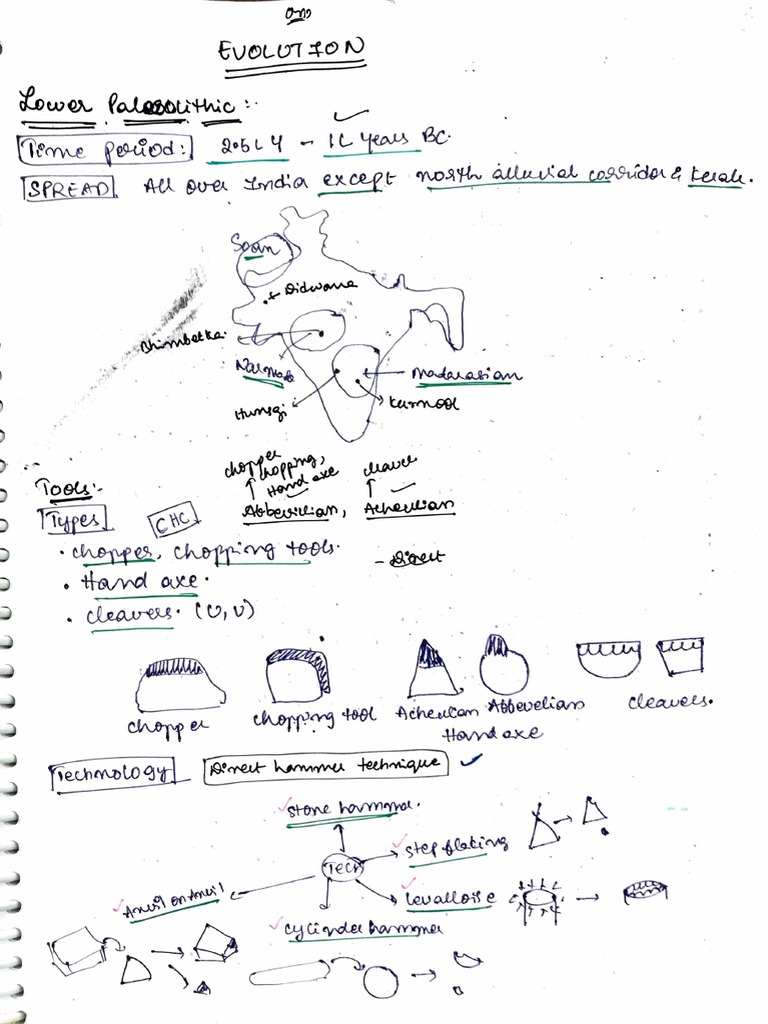 EVOLUTION
Lower Palaeolithic:-
Time period: 2.5 L Y - 1L years BC.
SPREAD All over India except north alluvial corridor & Kerala.
Soan
Didwana
Bhimbetka
Narmada
Madarasian
Hunsgi
Kurnool
chopper
chopping,
Hand axe
cleaver
Tools:-
Types CHC Abbevillian, Acheulian
• chopper, chopping tools.
- Direct
• Hand axe.
• cleavers. (U, V)
chopper
chopping tool
Acheulian Abbevelian
Hand axe
cleavers.
Technology Direct hammer technique
stone hammer.
step flaking
Tech
Levalloise
Anvil on Anvil
cylinder hammer